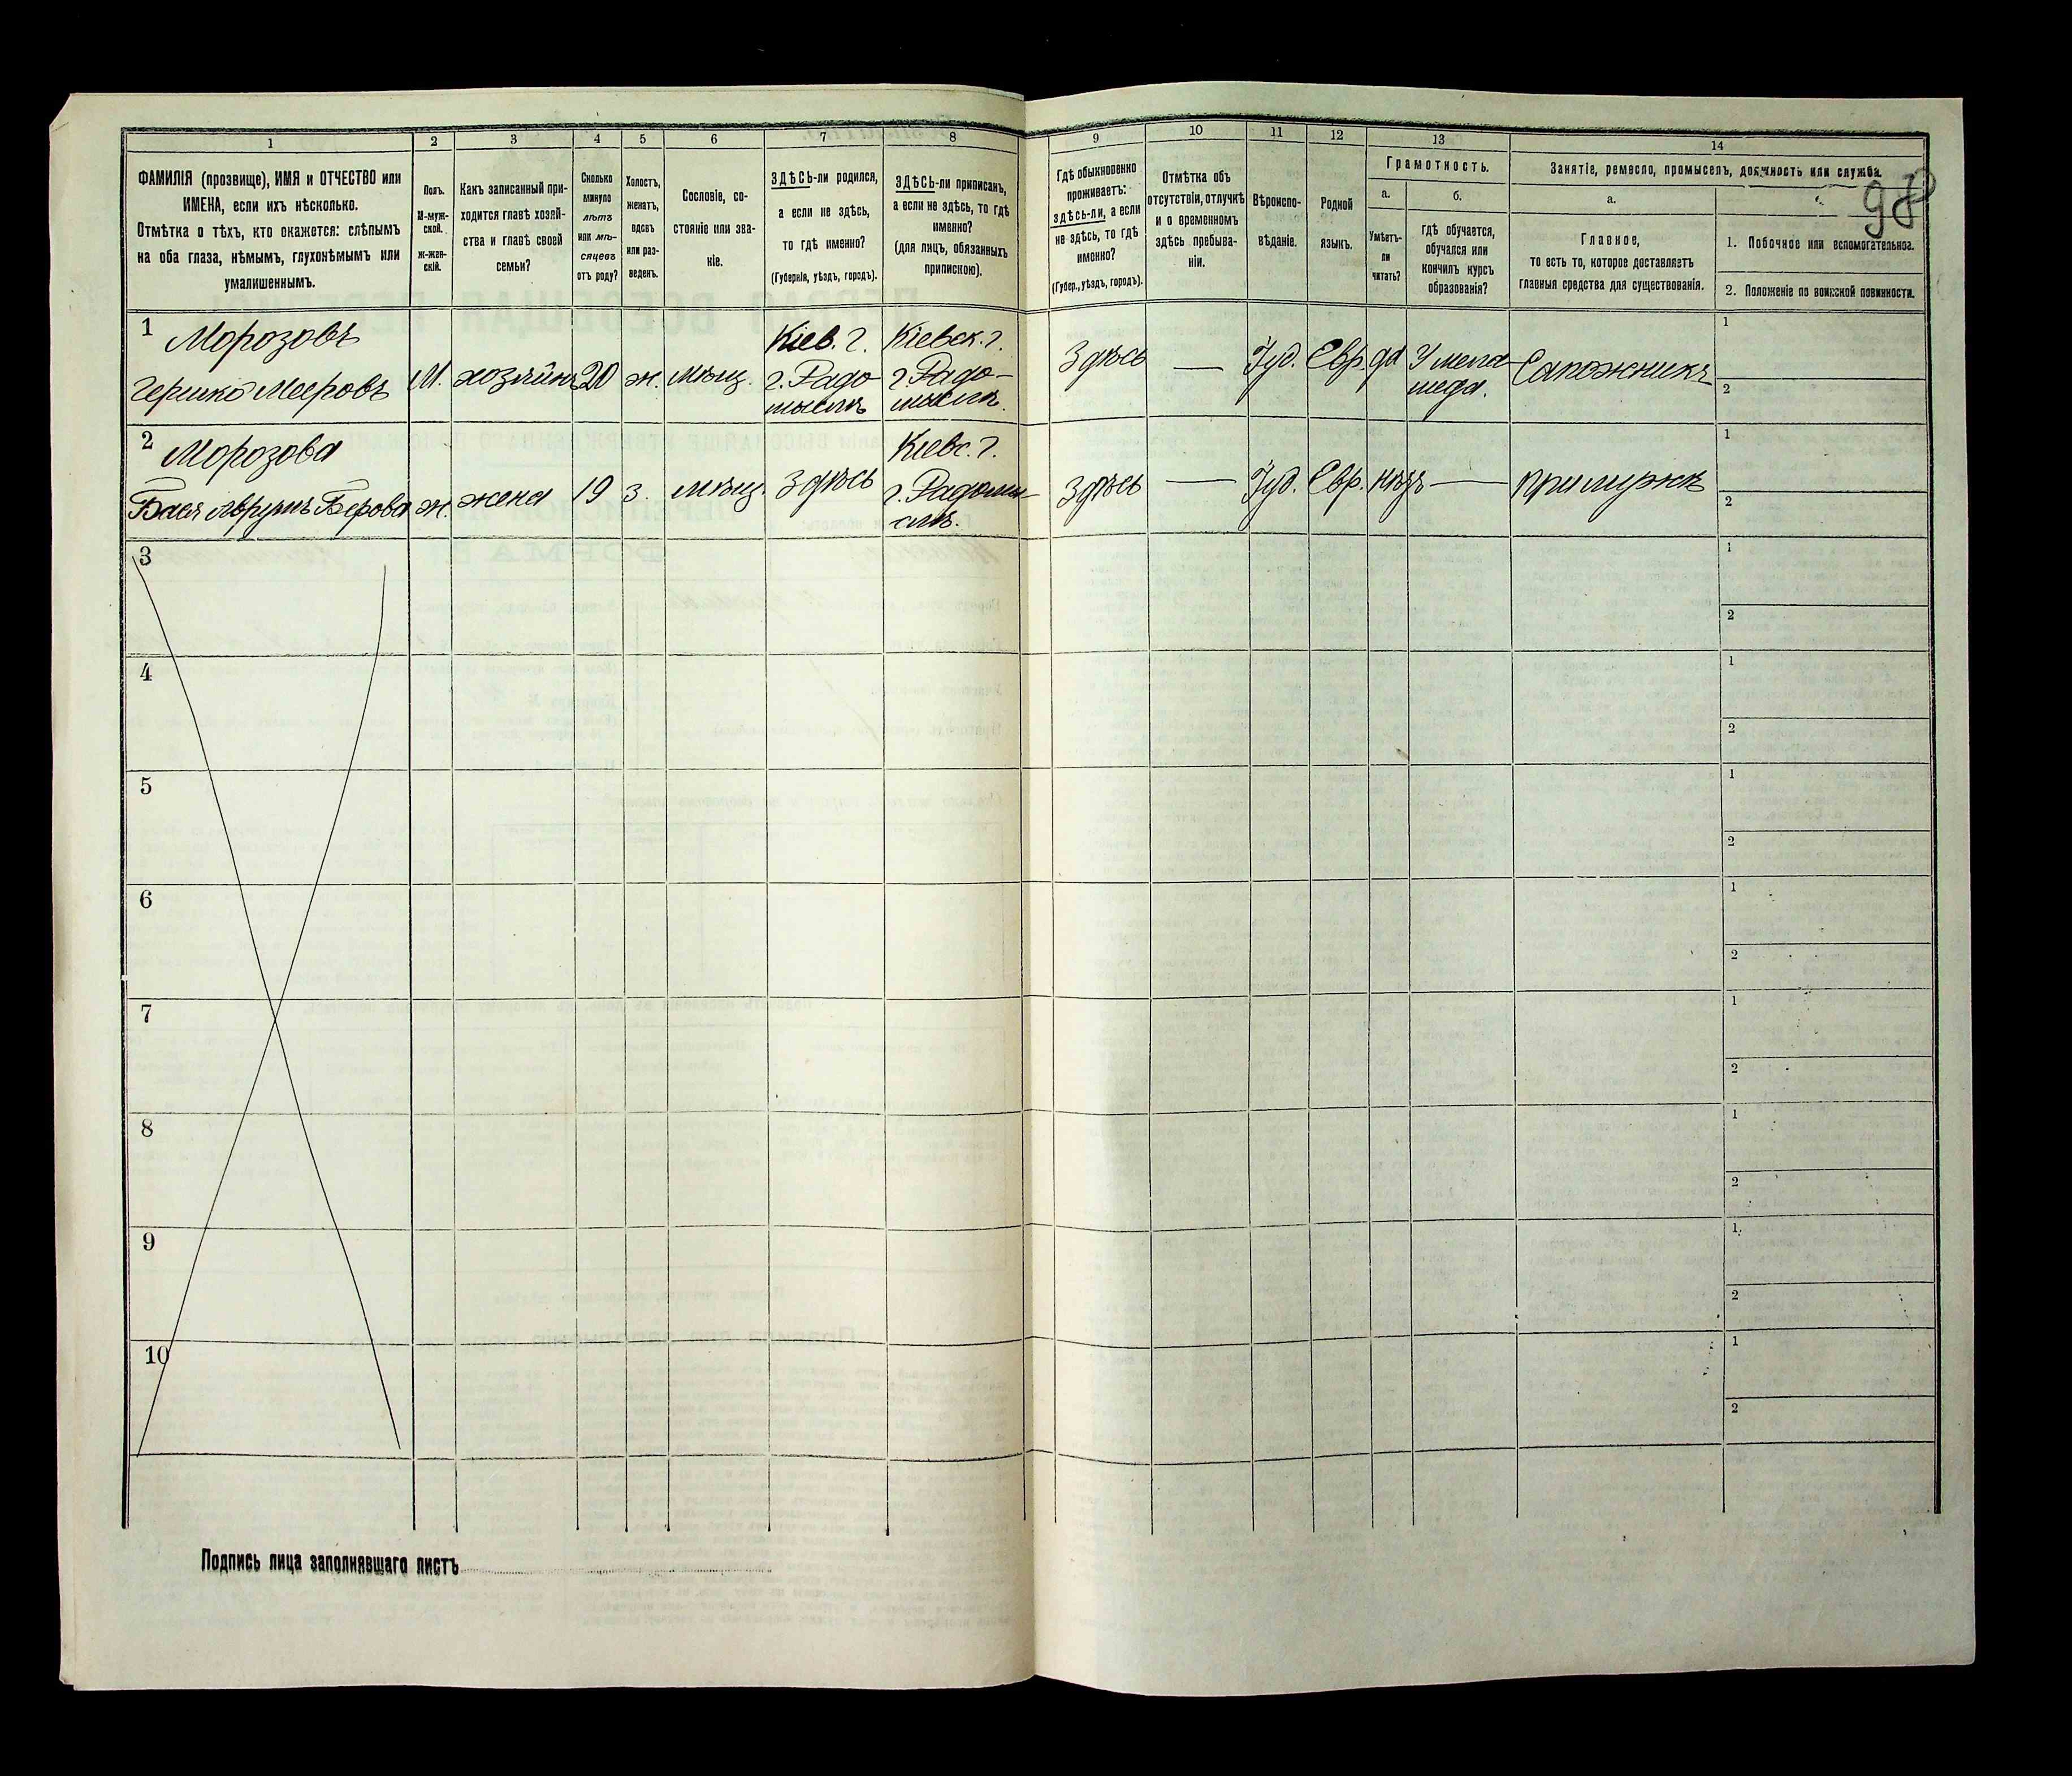 98
1
ФАМИЛІЯ (прозвище), ИМЯ и ОТЧЕСТВО или
ИМЕНА, если ихъ нѣсколько.
Отмѣтка о тѣхъ, кто окажется: слѣпымъ
на оба глаза, нѣмымъ, глухонѣмымъ или
умалишеннымъ.
2
Полъ.
М-муж-
ской.
Ж-жен-
скій.
3
Какъ записанный при-
ходится главѣ хозяй-
ства и главѣ своей
семьи?
4
Сколько
минуло
лѣтъ
или мѣ-
сяцевъ
отъ роду?
5
Холостъ,
женатъ,
вдовъ
или раз-
веденъ.
6
Сословіе, со-
стояніе или зва-
ніе.
7
ЗДѢСЬ-ли родился,
а если не здѣсь,
то гдѣ именно?
(Губернія, уѣздъ, городъ).
8
ЗДѢСЬ-ли приписанъ,
а если не здѣсь, то гдѣ
именно?
(для лицъ, обязанныхъ
припискою).
9
Гдѣ обыкновенно
проживаетъ:
здѣсь-ли, а если
не здѣсь, то гдѣ
именно?
(Губер., уѣздъ, городъ).
10
Отмѣтка объ
отсутствіи, отлучкѣ
и о временномъ
здѣсь пребыва-
ніи.
11
Вѣроиспо-
вѣданіе.
12
Родной
языкъ.
13
Грамотность.
а.
Умѣетъ-
ли
читать?
б.
гдѣ обучается,
обучался или
кончилъ курсъ
образованія?
14
Занятіе, ремесло, промыселъ, должность или служба.
а.
Главное,
то есть то, которое доставляетъ
главныя средства для существованія.
1. Побочное или вспомогательное.
2. Положеніе по воинской повинности.
1
Морозовъ
Гершко Мееровъ
М.
хозяинъ
20
ж.
мѣщ.
Кіев. г.
г. Радо-
мыслѣ
Кіевск. г.
г. Радо-
мыслѣ.
Здѣсь
—
Іуд.
Евр.
да
У мела-
меда.
Сапожникъ
1
2
2
Морозова
Бася
Берова
ж.
жена
19
з.
мѣщ.
Здѣсь
Кіевс. г.
г. Радомы-
слѣ.
Здѣсь
—
Іуд.
Евр.
нѣтъ
—
при мужѣ
1
2
3
1
2
4
1
2
5
1
2
6
1
2
7
1
2
8
1
2
9
1
2
10
1
2
Подпись лица заполнявшаго листъ